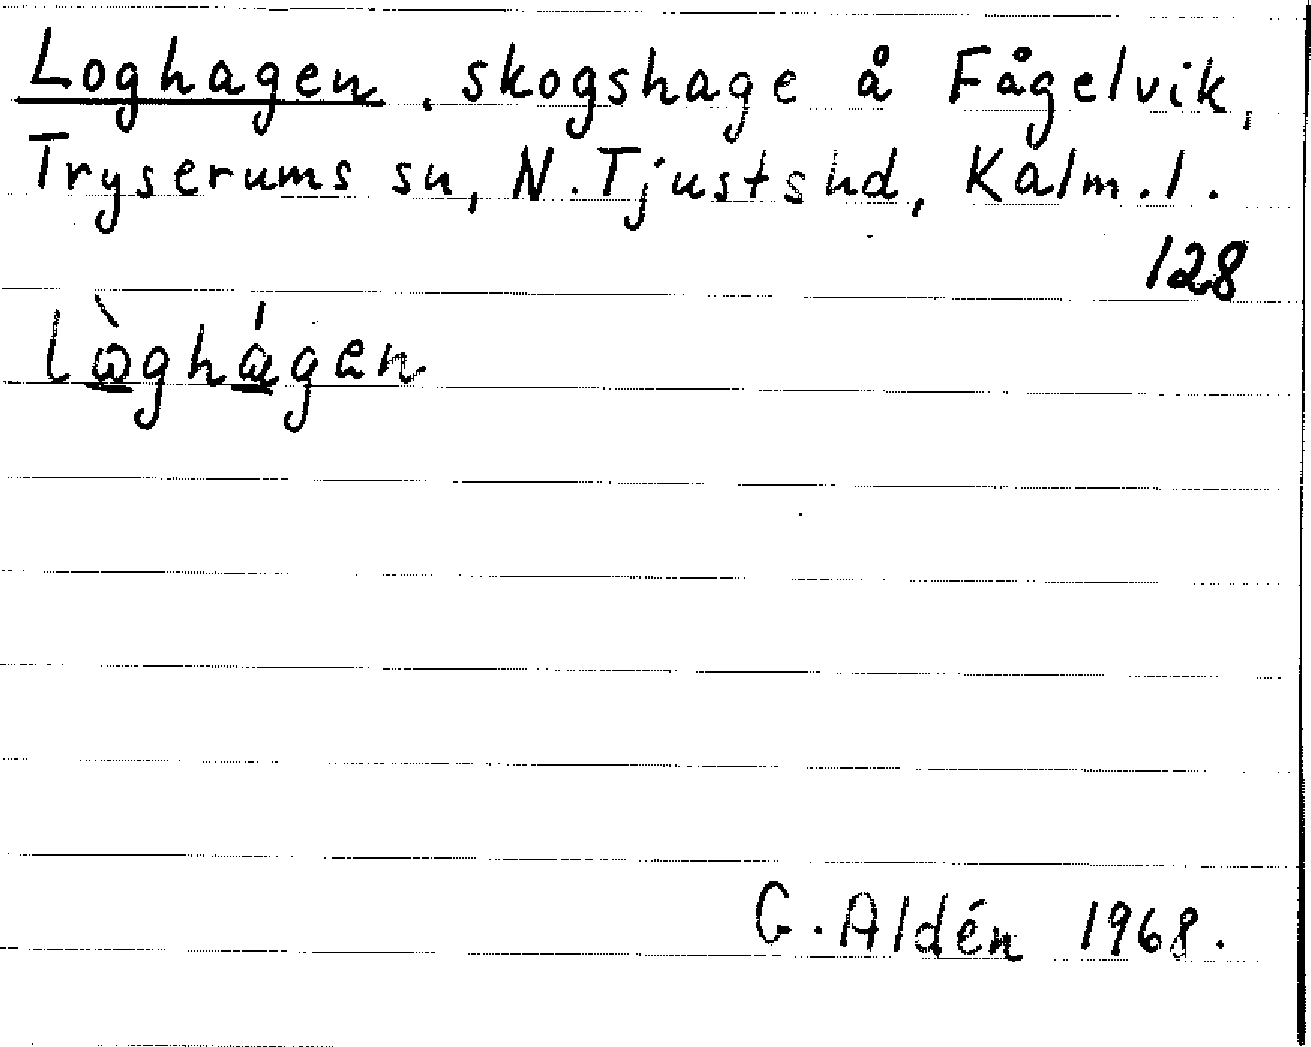 Loghagen, skogshage å Fågelvik,
Tryserums sn, N. Tjusts hd, Kalm. l.
128
G. Aldén 1968.